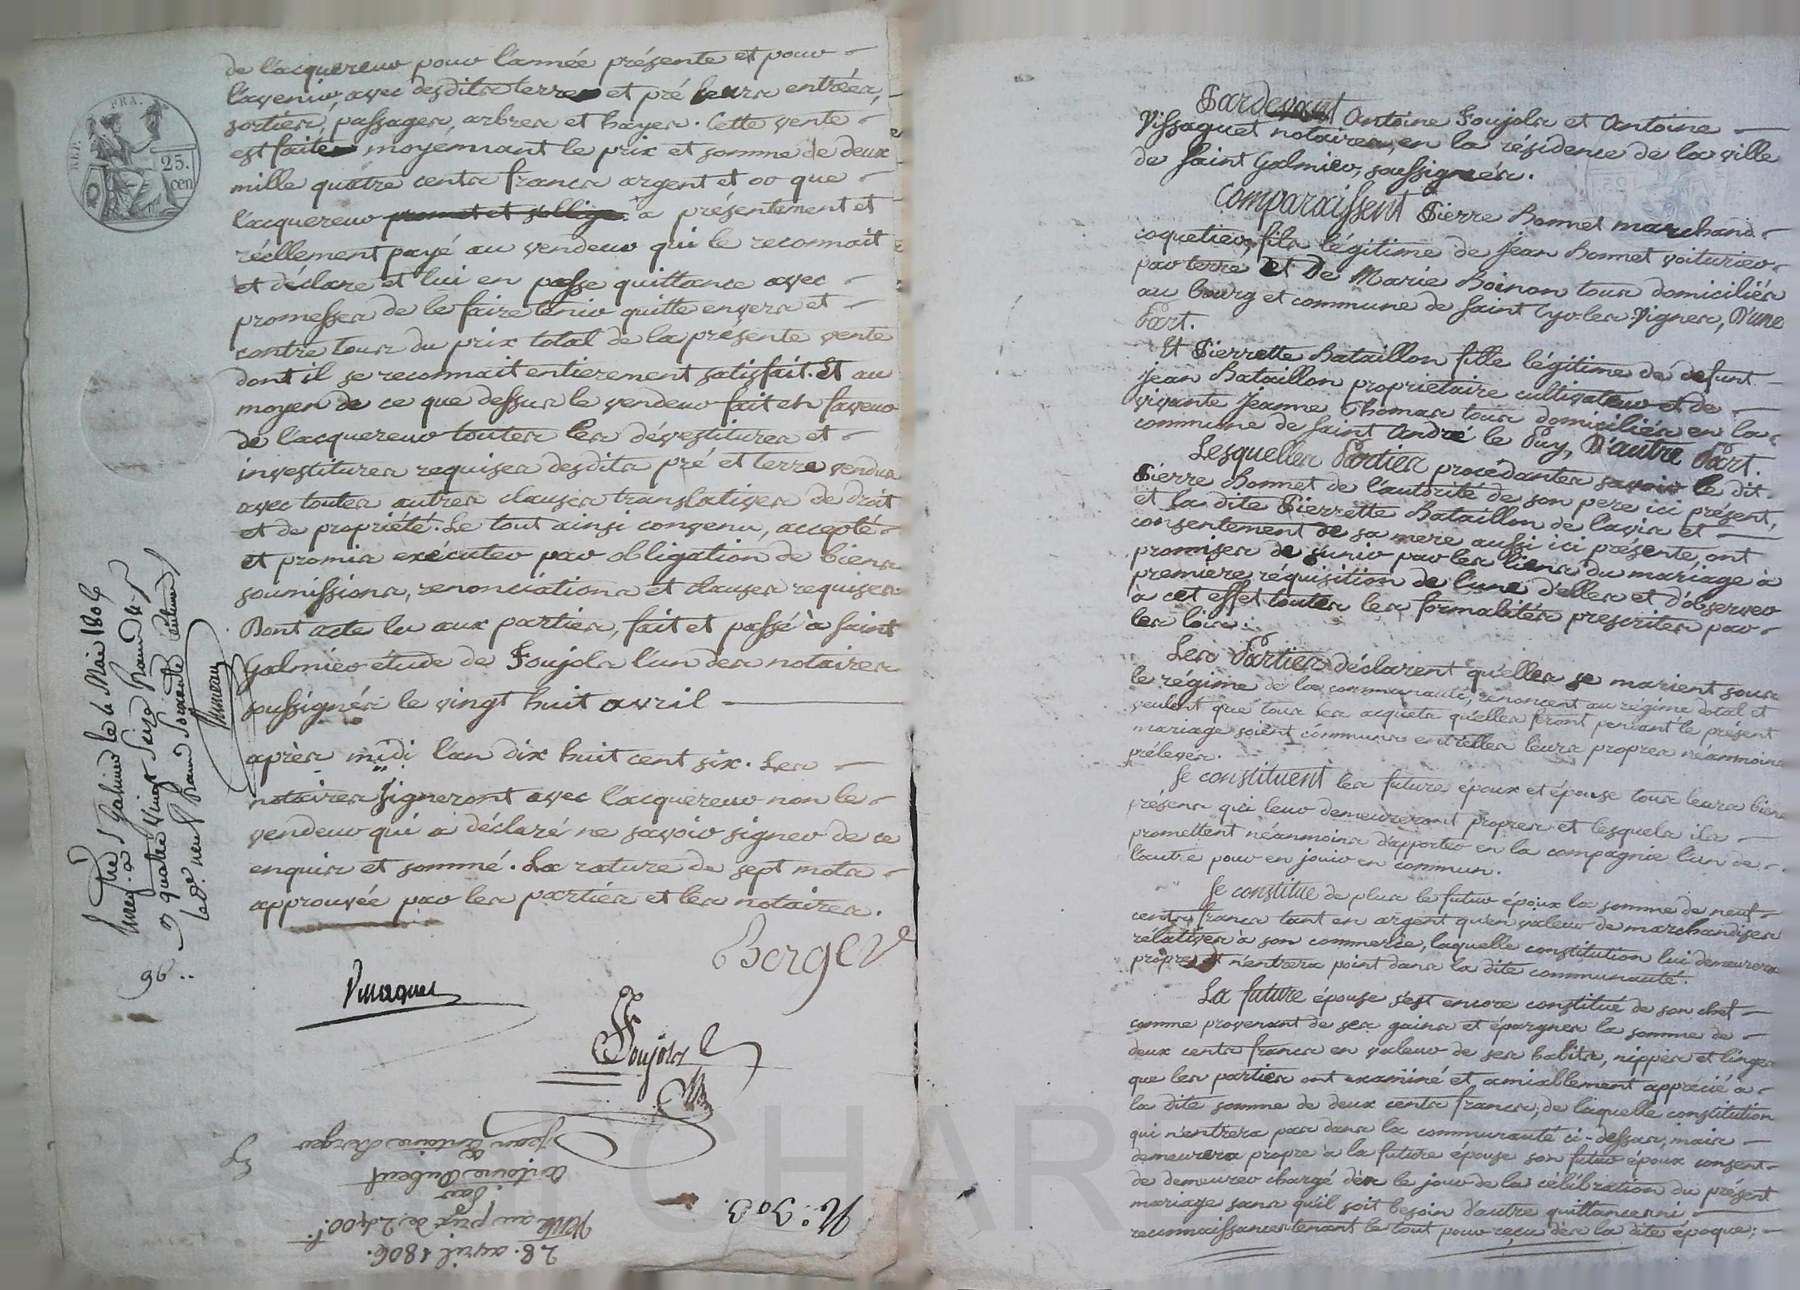 de l'acquereur pour l'année présente et pour
l'avenir, avec desdits terres et pré leurs entrées,
sorties, passages, arbres et hayes. Cette vente
est faite moyennant le prix et somme de deux
mille quatre cents francs argent et or que
l'acquereur promet et s'oblige a présentement et
réellement payé au vendeur qui le reconnait
et déclare et lui en passe quittance avec
promesses de le faire tenir quitte envers et
contre tous du prix total de la présente vente
dont il se reconnait entierement satisfait. Et au
moyen de ce que dessus le vendeur fait en faveur
de l'acquereur toutes les dévestitures et
investitures requises desdits pré et terre vendus
avec toutes autres clauses translatives de droit
et de propriété. Le tout ainsi convenu, accepté
et promis exécuter par obligation de biens
soumissions, renonciations et clauses requises
Dont acte lu aux parties, fait et passé à Saint
Galmier étude de Foujols l'un des notaires
soussignés le vingt huit avril
après midi l'an dix huit cent six. Les
notaires signeront avec l'acquereur non le
vendeur qui a déclaré ne savoir signer de ce
enquis et sommé. La rature de sept mots
approuvée par les parties et les notaires.
REP. FRA.
25.
cen
Mai 1806
96
Berger
Foujols
N.º 303.
28. avril 1806.
Vente au prix de 2400f.
par
Antoine Dubeuf
à
Jean Antoine Berger
Pardevant Antoine Foujols et Antoine
Vissaguet notaires, en la résidence de la ville
de Saint Galmier, soussignés.
Comparaissent Pierre Bonnet marchand
coquetier, fils légitime de Jean Bonnet voiturier
par terre et De Marie Boinon tous domiciliés
au bourg et commune de Saint Cyr les Vignes, D'une
Part.
Et Pierrette Bataillon fille légitime de défunt
Jean Bataillon propriétaire cultivateur et de
vivante Jeanne Thomas tous domiciliés en la
commune de Saint André le Puy, D'autre Part.
Lesquelles Parties procédantes savoir le dit
Pierre Bonnet de l'autorité de son pere ici présent,
et la dite Pierrette Bataillon de l'avis et
consentement de sa mere aussi ici présente, ont
promises de s'unir par les liens du mariage à
premiere réquisition de l'une d'elles et d'observer
à cet effet toutes les formalités prescrites par
les lois.
Les Parties déclarent qu'elles se marient sous
le régime de la communauté, renoncent au régime dotal et
veulent que tous les acquets qu'elles feront pendant le présent
mariage soient communs entr'elles leurs propres néanmoins
prélevés.
Se constituent les future époux et épouse tous leurs biens
présens qui leur demeureront propres et lesquels ils
promettent néanmoins d'apporter en la compagnie l'un de
l'autre pour en jouir en commun.
Se constitue de plus le futur époux la somme de neuf
cents francs tant en argent qu'en valeur de marchandises
rélatives à son commerce, laquelle constitution lui demeurera
propre et n'entrera point dans la dite communauté.
La future épouse s'est encore constitué de son chef
comme provenant de ses gains et épargnes la somme de
deux cents francs en valeur de ses habits, nippes et linges
que les parties ont examiné et amiablement apprécié à
la dite somme de deux cents francs; de laquelle constitution
qui n'entrera pas dans la communauté ci-dessus, mais
demeurera propre à la future épouse son futur époux consent
de demeurer chargé dès le jour de la célébration du présent
mariage sans qu'il soit besoin d'autre quittance ni
reconnaissance tenant le tout pour reçu dès la dite époque;